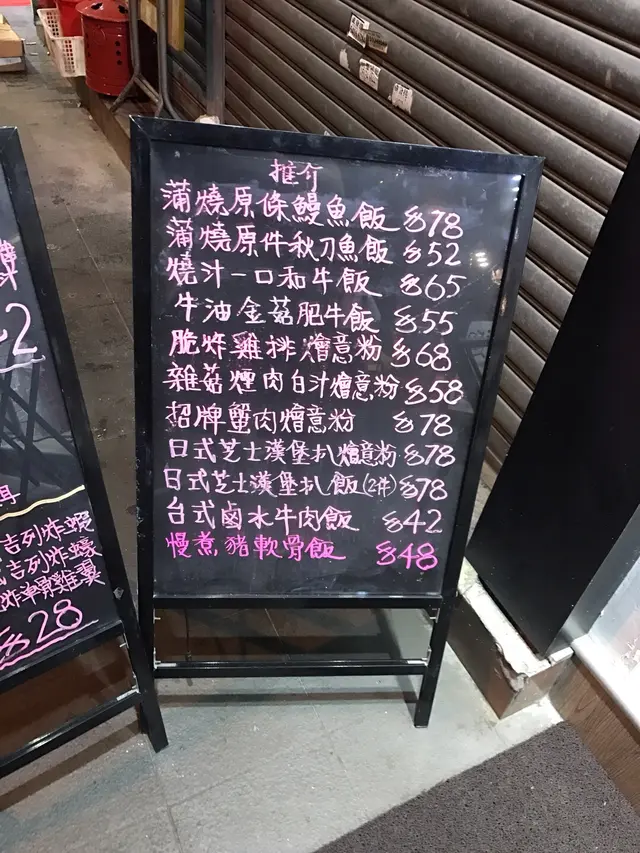 推介
蒲燒原條鰻魚飯 $78
蒲燒原件秋刀魚飯 $52
燒汁一口和牛飯 $65
牛油金菇肥牛飯 $55
脆炸雞排燴意粉 $68
雜菇煙肉白汁燴意粉 $58
招牌蟹肉燴意粉 $78
日式芝士漢堡扒燴意粉 $78
日式芝士漢堡扒飯(2件) $78
台式鹵水牛肉飯 $42
慢煮豬軟骨飯 $48
2
吉列炸蝦
吉列炸蠔
炸軟骨雞翼
$28